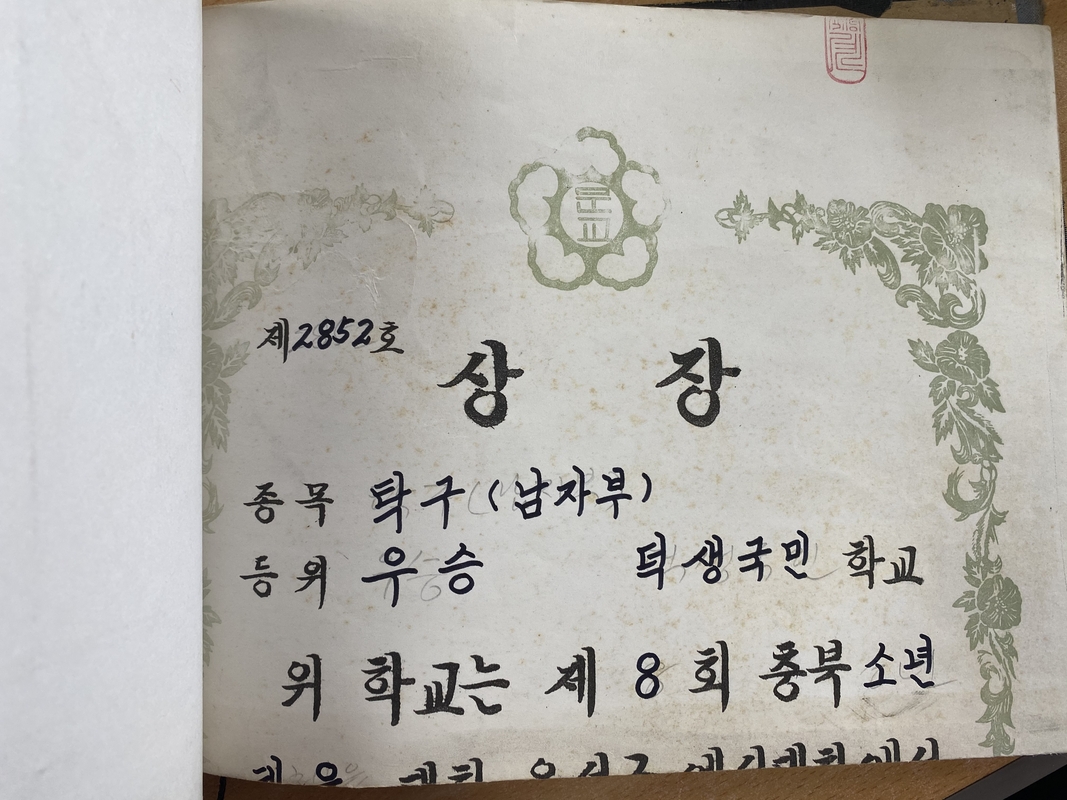 문교
제2852호
상 장
종목 탁구 (남자부)
등위 우승 덕생국민 학교
위 학교는 제 8 회 충북소년